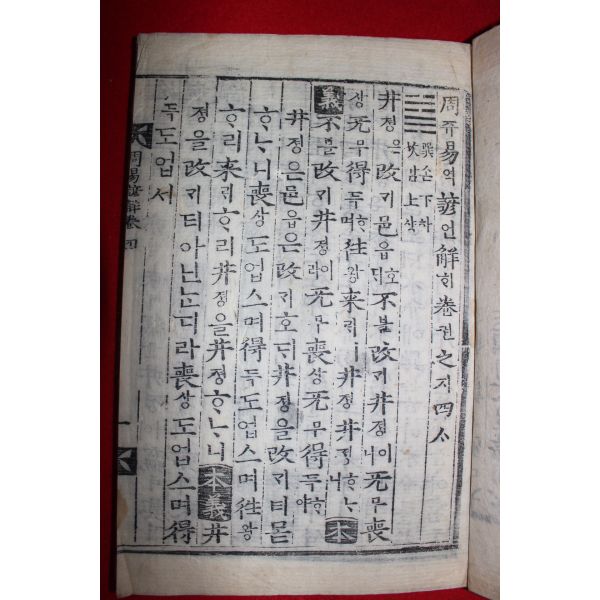 周쥬易역諺언解ᄒᆡ卷권之지四ᄉᆞ
巽손下하
坎감上샹
井졍은改ᄀᆡ邑읍호ᄃᆡ不블改ᄀᆡ井졍이니无무喪
상无무得득ᄒᆞ며往왕來ᄅᆡ井졍井졍ᄒᆞᄂᆞ니本
義不블改ᄀᆡ井졍이라无무喪상无무得득ᄒᆞ야
井졍은邑읍은改ᄀᆡ호ᄃᆡ井졍을改ᄀᆡ티몯
ᄒᆞᄂᆞ니喪상도업스며得득도업스며往왕
ᄒᆞ리來ᄅᆡᄒᆞ리井졍을井졍ᄒᆞᄂᆞ니本義井
졍을改ᄀᆡ티아닌ᄂᆞᆫ디라喪상도업스며得
득도업서
周易諺解卷四
一